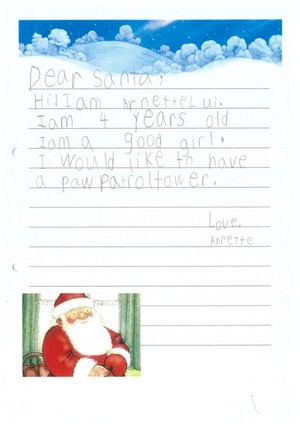 Dear Santa,
Hi! I am Annette Lui.
I am 4 years old
I am a good girl.
I would like to have
a paw patrol tower.
Love,
Annette